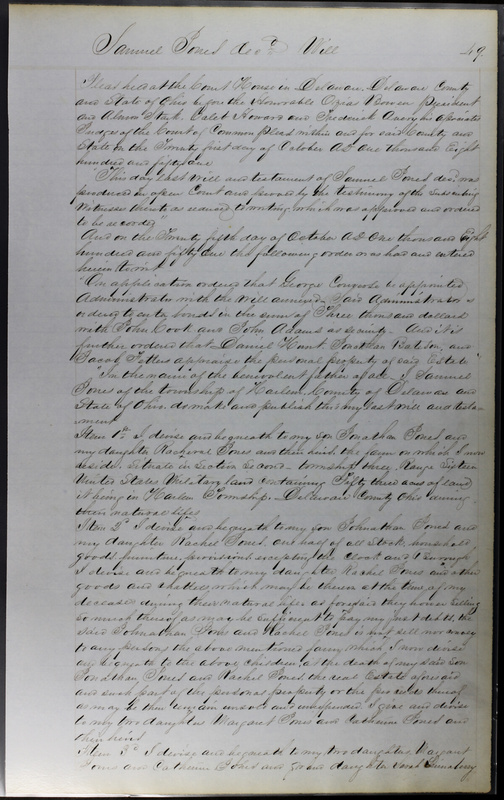 Samuel Jones decd Will 49
Pleas held at the Court House in Delaware, Delaware County
and State of Ohio before the Honorable Ozias Bowen President
and Ahira Stark, Caleb Howard and Frederick Avery his Associates
Judges of the Court of Common Pleas within and for said County and
State on the Twenty first day of October AD One thousand Eight
hundred and fifty one
"This day last Will and testament of Samuel Jones decd was
produced in open Court and proved by the testimony of the Subscribing
Witnesses thereto as reduced to writing, which was approved and ordered
to be recorded"
And on the Twenty fifth day of October AD One thousand Eight
hundred and fifty One the following order was had and entered
herein to wit
"On application ordered that George be appointed
Administrator with the Will annexed. Said Administrator is
ordered to give bonds in the sum of Three thousand dollars
with John Cook and John Adams as security. And it is
further ordered that Daniel Hunt Jonathan Batson, and
Jacob Fetters appraise the personal property of said Estate"
"In the name of the benevolent father of all. I Samuel
Jones of the township of Harlem, County of Delaware and
State of Ohio, do make and publish this my last will and testa-
ment
Item 1st I devise and bequeath to my son Jonathan Jones and
my daughter Racheral Jones and their heirs the farm on which I now
reside. Situate in Section Second - township three, Range Sixteen
United States Military land containing Fifty three acres of land
it being in Harlem Township Delaware County Ohio during
their natural lifes
Item 2d I devise and bequeath to my son Johnathan Jones and
my daughter Rachel Jones, one half of all Stock, household
goods furniture, provisions excepting the Clock and
I devise and bequeath to my daughter Rachel Jones and other
goods and chattels which may be thereon at the time of my
decease during their natural lifes as foresaid they however selling
so much thereof as may be sufficient to pay my just debts, the
said Johnathan Jones and Rachel Jones is not sell nor convey
to any persons the above mentioned farm which I now devise
and bequeath to the above children, at the death of my said Son
Jonathan Jones and Rachel Jones the real Estate aforesaid
and such part of the personal property or the proceeds thereof
as may be then remain unsold and unexpended I give and devise
to my two daughters Margaret Jones and Catherine Jones and
their heirs
Item 3d I devise and bequeath to my two daughters Margaret
Jones and Catherine Jones and grand daughter Sarah